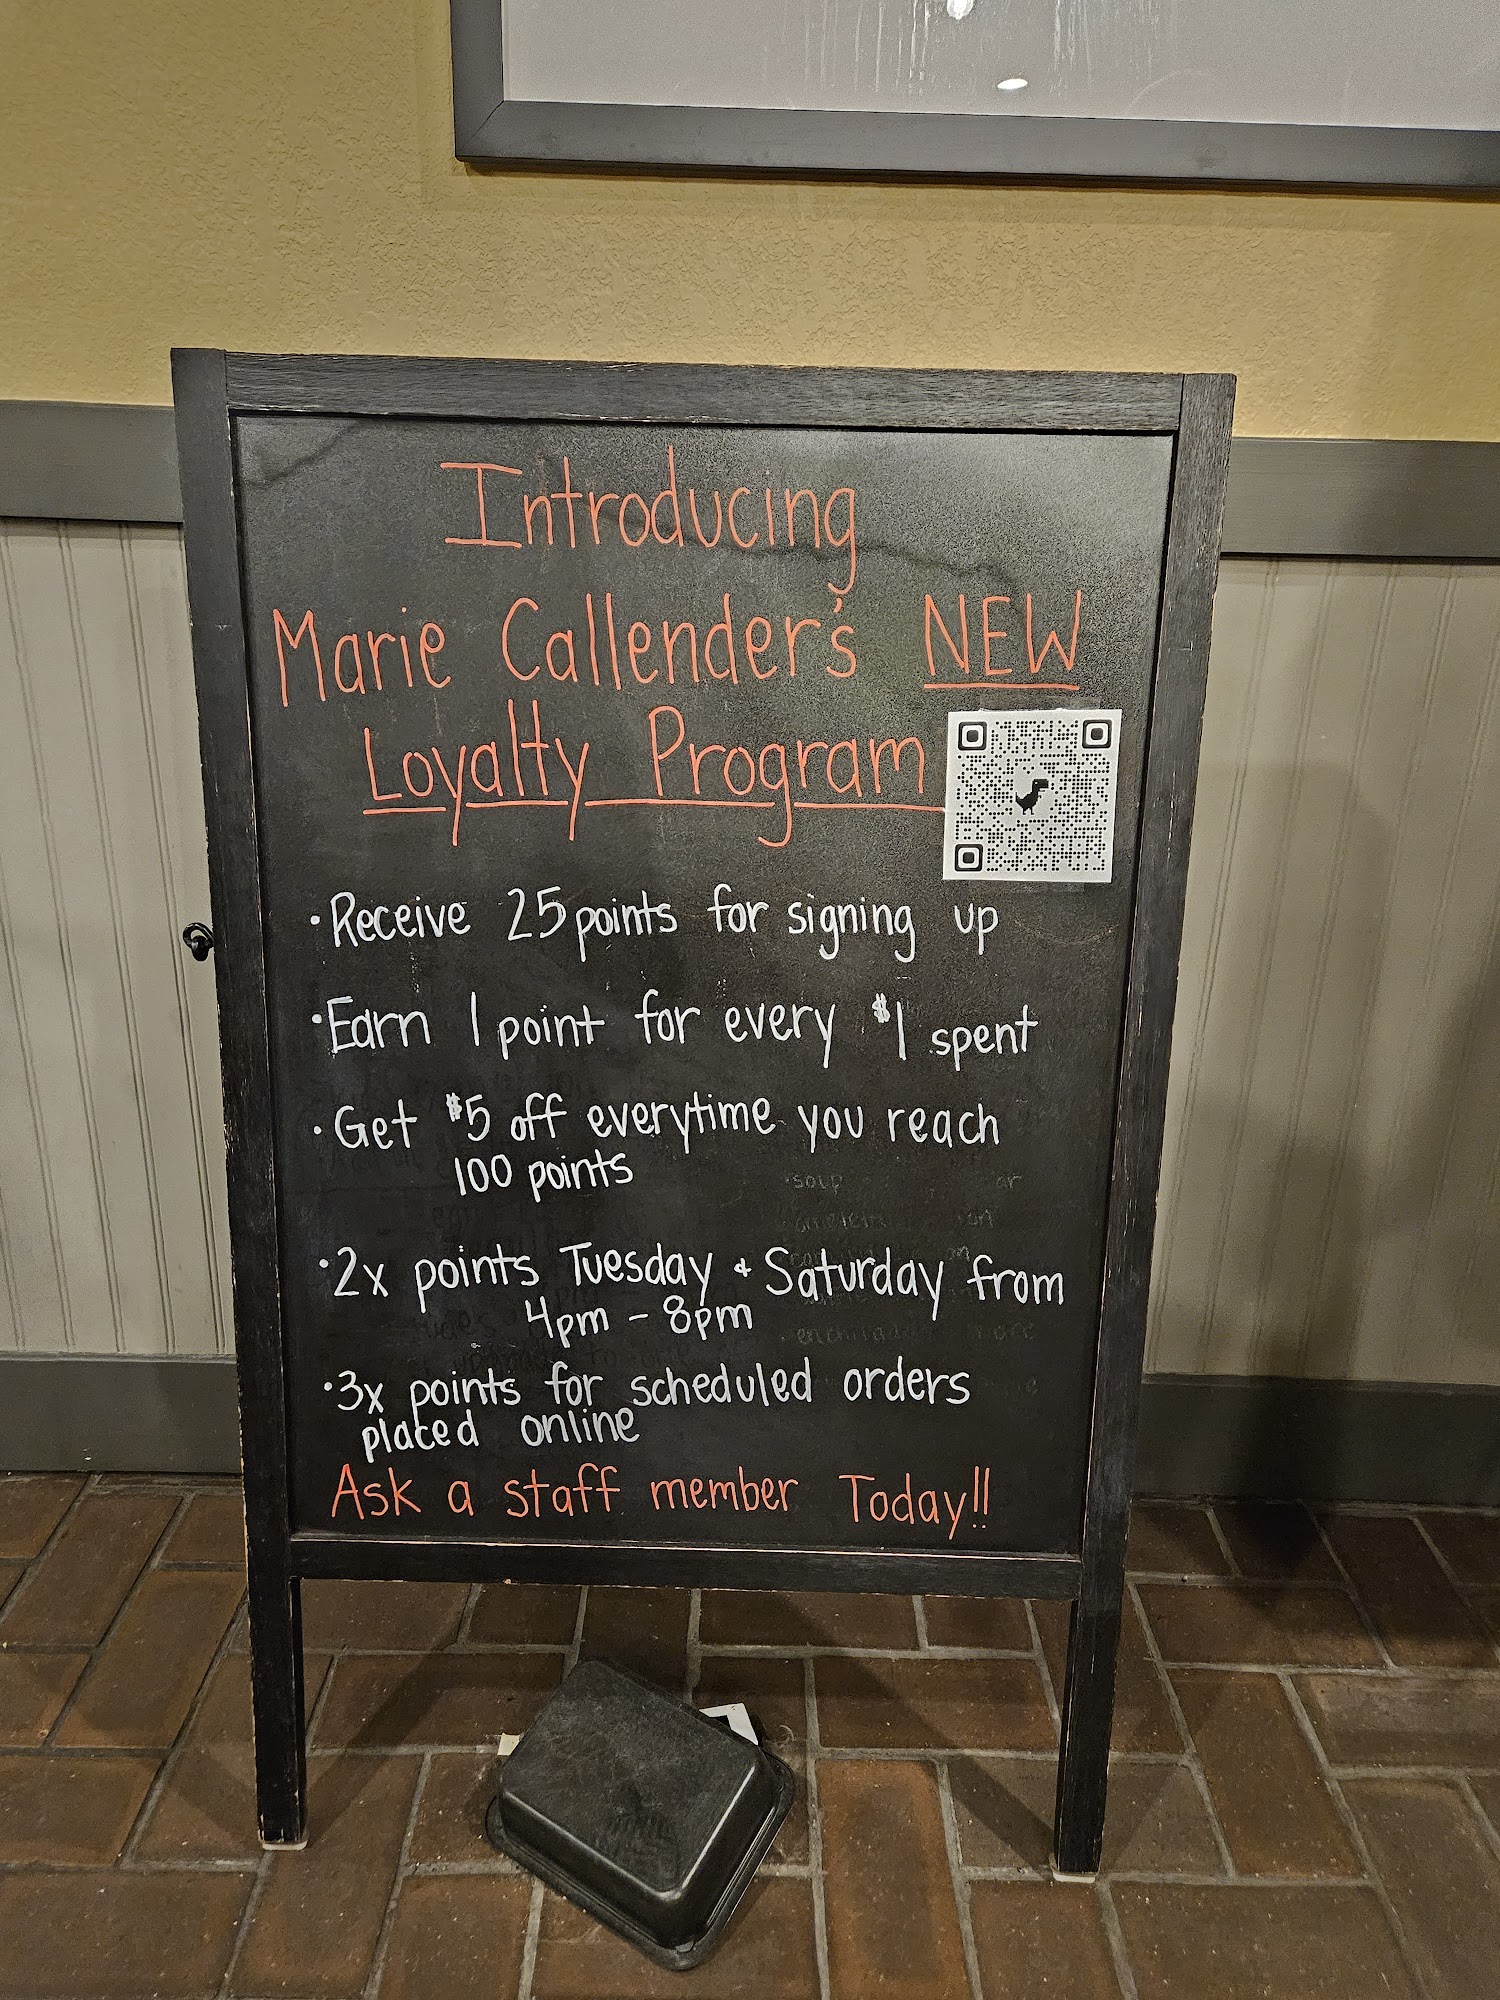 Introducing
Marie Callender's NEW
Loyalty Program
• Receive 25 points for signing up
• Earn 1 point for every $1 spent
• Get $5 off everytime you reach
100 points
• 2x points Tuesday + Saturday from
4pm - 8pm
• 3x points for scheduled orders
placed online
Ask a staff member Today!!